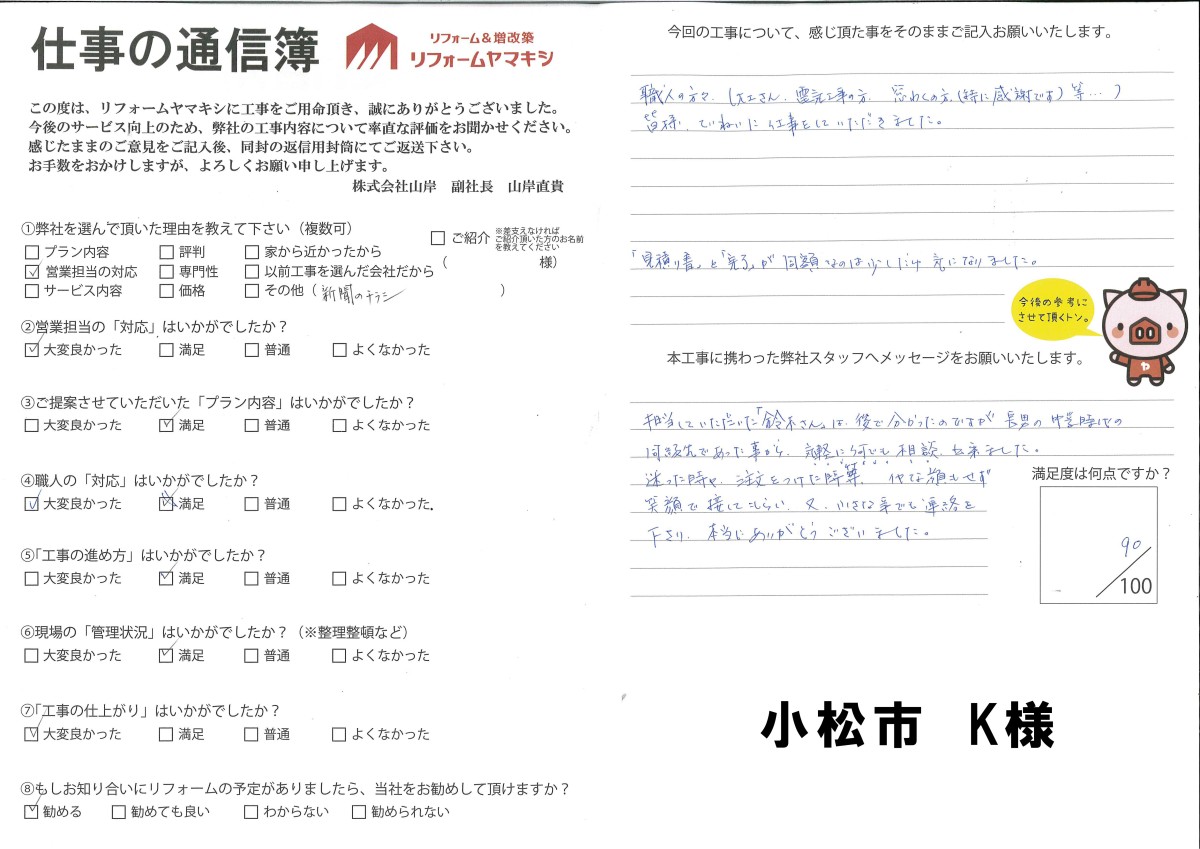 仕事の通信簿
リフォーム&増改築
リフォームヤマキシ
この度は、リフォームヤマキシに工事をご用命頂き、誠にありがとうございました。
今後のサービス向上のため、弊社の工事内容について率直な評価をお聞かせください。
感じたままのご意見をご記入後、同封の返信用封筒にてご返送下さい。
お手数をおかけしますが、よろしくお願い申し上げます。
株式会社山岸 副社長 山岸直貴
①弊社を選んで頂いた理由を教えて下さい（複数可）
□ プラン内容 □ 評判 □ 家から近かったから
☑ 営業担当の対応 □ 専門性 □ 以前工事を選んだ会社だから
□ サービス内容 □ 価格 □ その他（新聞のチラシ）
□ ご紹介 ※差支えなければ
ご紹介頂いた方のお名前
を教えてください
（ 様）
②営業担当の「対応」はいかがでしたか？
☑ 大変良かった □ 満足 □ 普通 □ よくなかった
③ご提案させていただいた「プラン内容」はいかがでしたか？
□ 大変良かった ☑ 満足 □ 普通 □ よくなかった
④職人の「対応」はいかがでしたか？
☑ 大変良かった ☑ 満足 □ 普通 □ よくなかった
⑤「工事の進め方」はいかがでしたか？
□ 大変良かった ☑ 満足 □ 普通 □ よくなかった
⑥現場の「管理状況」はいかがでしたか？（※整理整頓など）
□ 大変良かった ☑ 満足 □ 普通 □ よくなかった
⑦「工事の仕上がり」はいかがでしたか？
☑ 大変良かった □ 満足 □ 普通 □ よくなかった
⑧もしお知り合いにリフォームの予定がありましたら、当社をお勧めして頂けますか？
☑ 勧める □ 勧めても良い □ わからない □ 勧められない
今回の工事について、感じ頂た事をそのままご記入お願いいたします。
職人の方々（大工さん、電気工事の方、の方（特に感謝です）等…）
皆様、ていねいに仕事をしていただきました。
「見積り書」と「完了」が同額なのは少しだけ気になりました。
今後の参考に
させて頂くトン。
ヤ
本工事に携わった弊社スタッフへメッセージをお願いいたします。
担当していただいた「鈴木さん」は、後で分かったのですが長男の時代の
であった事から、気軽に何でも相談出来ました。
迷った時や、注文をつけた時等、イヤな顔もせず
笑顔で接してもらい、又、小さな事でも連絡を
下さり、本当にありがとうございました。
満足度は何点ですか？
90
/100
小松市 K様